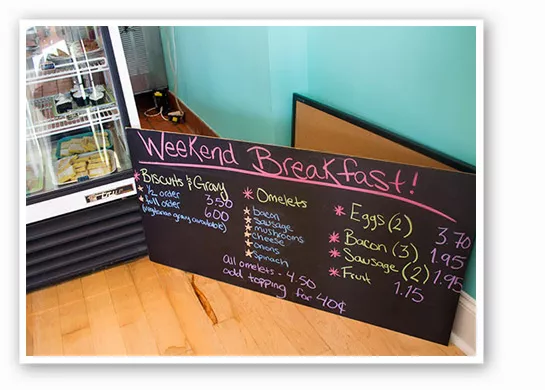 Weekend Breakfast!
* Biscuits & Gravy
* 1/2 order 3.50
* full order 6.00
(vegetarian gravy available)
* Omelets
* bacon
* sausage
* mushrooms
* cheese
* onions
* spinach
All omelets - 4.50
add topping for 40¢
* Eggs (2) 3.70
* Bacon (3) 1.95
* Sausage (2) 1.95
* Fruit 1.15